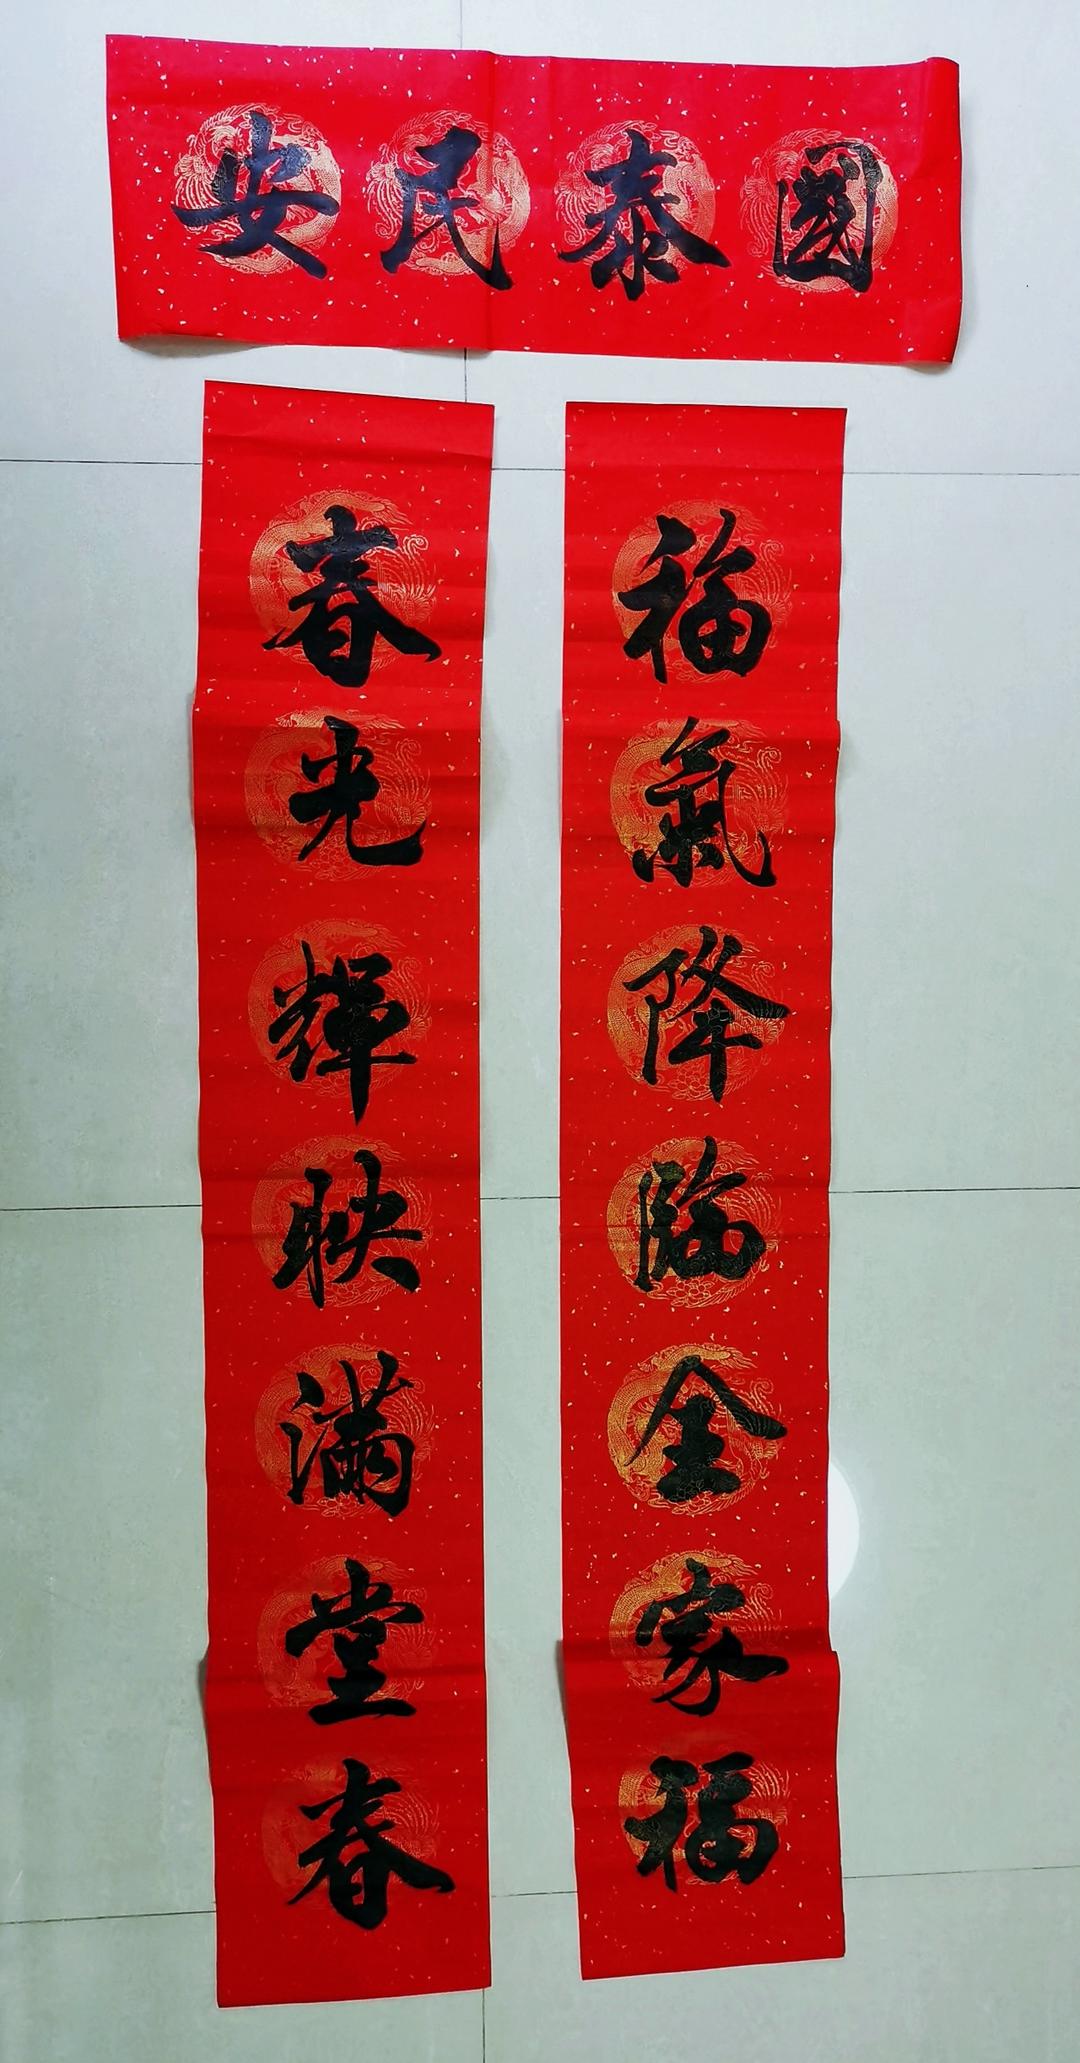 國泰民安
福氣降臨全家福
春光輝映滿堂春